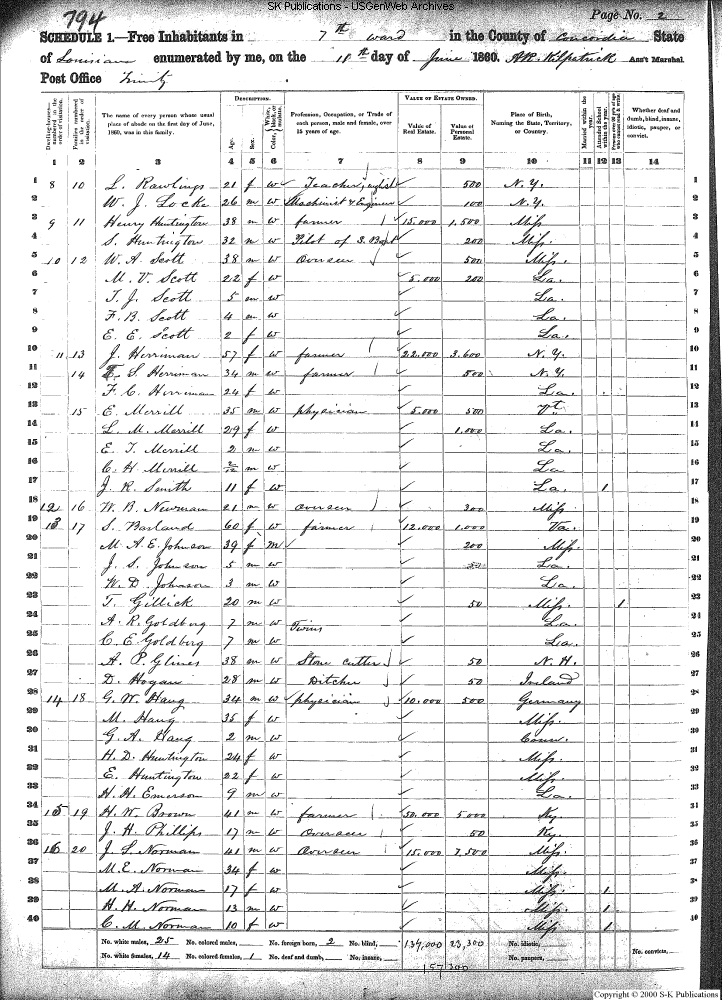 SK Publications - USGenWeb Archives
794
Page No. 2
SCHEDULE 1.—Free Inhabitants in 7th ward in the County of Concordia State
of Louisiana enumerated by me, on the 18th day of June 1860. Ass't Marshal.
Post Office Trinity
DESCRIPTION. VALUE OF ESTATE OWNED.
Dwelling-houses—numbered in the order of visitation. Families numbered in the order of visitation. The name of every person whose usual place of abode on the first day of June, 1860, was in this family. Age. Sex. Color, White, black, or mulatto. Profession, Occupation, or Trade of each person, male and female, over 15 years of age. Value of Real Estate. Value of Personal Estate. Place of Birth, Naming the State, Territory, or Country. Married within the year. Attended School within the year. Whether deaf and dumb, blind, insane, idiotic, pauper, or convict.
1 2 3 4 5 6 7 8 9 10 11 12 13 14
1 8 10 L. Rawlings 21 f w Teacher, 500 N. Y. 1
2 W. J. Locke 26 m w Machinist & Engineer 100 N. Y. 2
3 9 11 Henry Huntington 38 m w farmer 15.000 1.500 Miss 3
4 S. Huntington 32 m w Pilot of S. Boat 200 Miss. 4
5 10 12 W. A. Scott 38 m w Overseer 500 Miss. 5
6 M. V. Scott 22 f w 5.000 200 La. 6
7 T. J. Scott 5 m w La. 7
8 F. B. Scott 4 m w La. 8
9 E. E. Scott 2 f w La. 9
10 11 13 J. Herriman 57 f w farmer 22.000 3.600 N. Y. 10
11 14 S Herriman 34 m w farmer 500 N. Y. 11
12 F. C. Herriman 24 f w La. 12
13 15 E. Merrill 35 m w physician 5.000 500 Vt. 13
14 L. M. Merrill 29 f w 1.000 La. 14
15 E. T. Merrill 2 m w La. 15
16 C. H Merrill 2/12 m w La 16
17 J. R. Smith 11 f w La. 1 17
18 12 16 W. B. Newman 21 m w Overseer 300 Miss 18
19 13 17 S. Barland 60 f w farmer 12.000 1.000 Va. 19
20 M. A. E. Johnson 39 f m 200 Miss. 20
21 J. S. Johnson 5 m w La. 21
22 W. D. Johnson 3 m w La. 22
23 T. Gillick 20 m w 50 Miss. 1 23
24 A. R. Goldberg 7 m w Twins La. 24
25 C. E. Goldberg 7 m w La. 25
26 A. P. Glines 38 m w Stone cutter 50 N. H. 26
27 D. Hogan 28 m w Ditcher 50 Ireland 27
28 14 18 G. W. Haug 34 m w physician 10.000 500 Germany 28
29 M. Haug 35 f w Miss. 29
30 G. A. Haug 2 m w Conn. 30
31 H. D. Huntington 24 f w Miss. 31
32 E. Huntington 22 f w Miss. 32
33 H. H. Emerson 9 m w La. 33
34 15 19 H. W. Brown 41 m w farmer 50.000 5.000 Ky. 34
35 J. H. Phillips 17 m w Overseer 50 Ky. 35
36 16 20 J. S. Norman 41 m w Overseer 15.000 7,500 Miss. 36
37 M. E. Norman 34 f w Miss. 37
38 M. A. Norman 17 f w Miss. 1 38
39 H. H. Norman 13 m w Miss. 1 39
40 C. M. Norman 10 f w Miss. 1 40
No. white males, 25 No. colored males, No. foreign born, 2 No. blind, 134,000 23,300 No. idiotic,
No. white females, 14 No. colored females, 1 No. deaf and dumb, No. insane, No. paupers, No. convicts,
157300
Copyright © 2000 S-K Publications